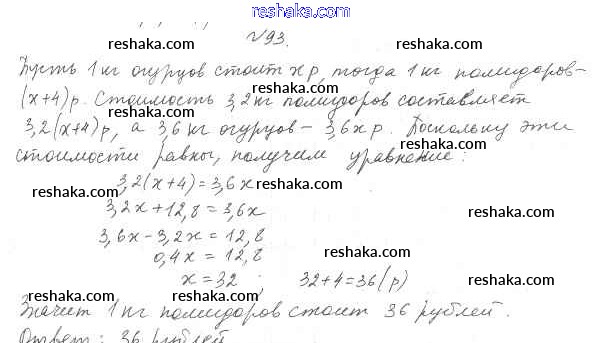 reshaka.com
№93.
reshaka.com reshaka.com
Пусть 1 кг огурцов стоит х р, тогда 1 кг помидоров –
reshaka.com
(х+4) р. Стоимость 3,2 кг помидоров составляет
reshaka.com
3,2(х+4) р, а 3,6 кг огурцов – 3,6х р. Поскольку эти
reshaka.com
стоимости равны, получим уравнение:
reshaka.com
3,2(х+4)=3,6х
reshaka.com
3,2х+12,8=3,6х
reshaka.com reshaka.com
3,6х-3,2х=12,8
reshaka.com
0,4х=12,8
х=32; 32+4=36(р)
reshaka.com reshaka.com
Значит 1 кг помидоров стоит 36 рублей.
reshaka.com
Ответ: 36 рублей